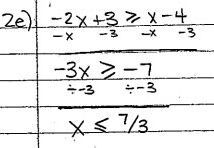 2e) -2x+3 ≥ x-4
-x -3 -x -3
-3x ≥ -7
÷-3 ÷-3
x ≤ 7/3